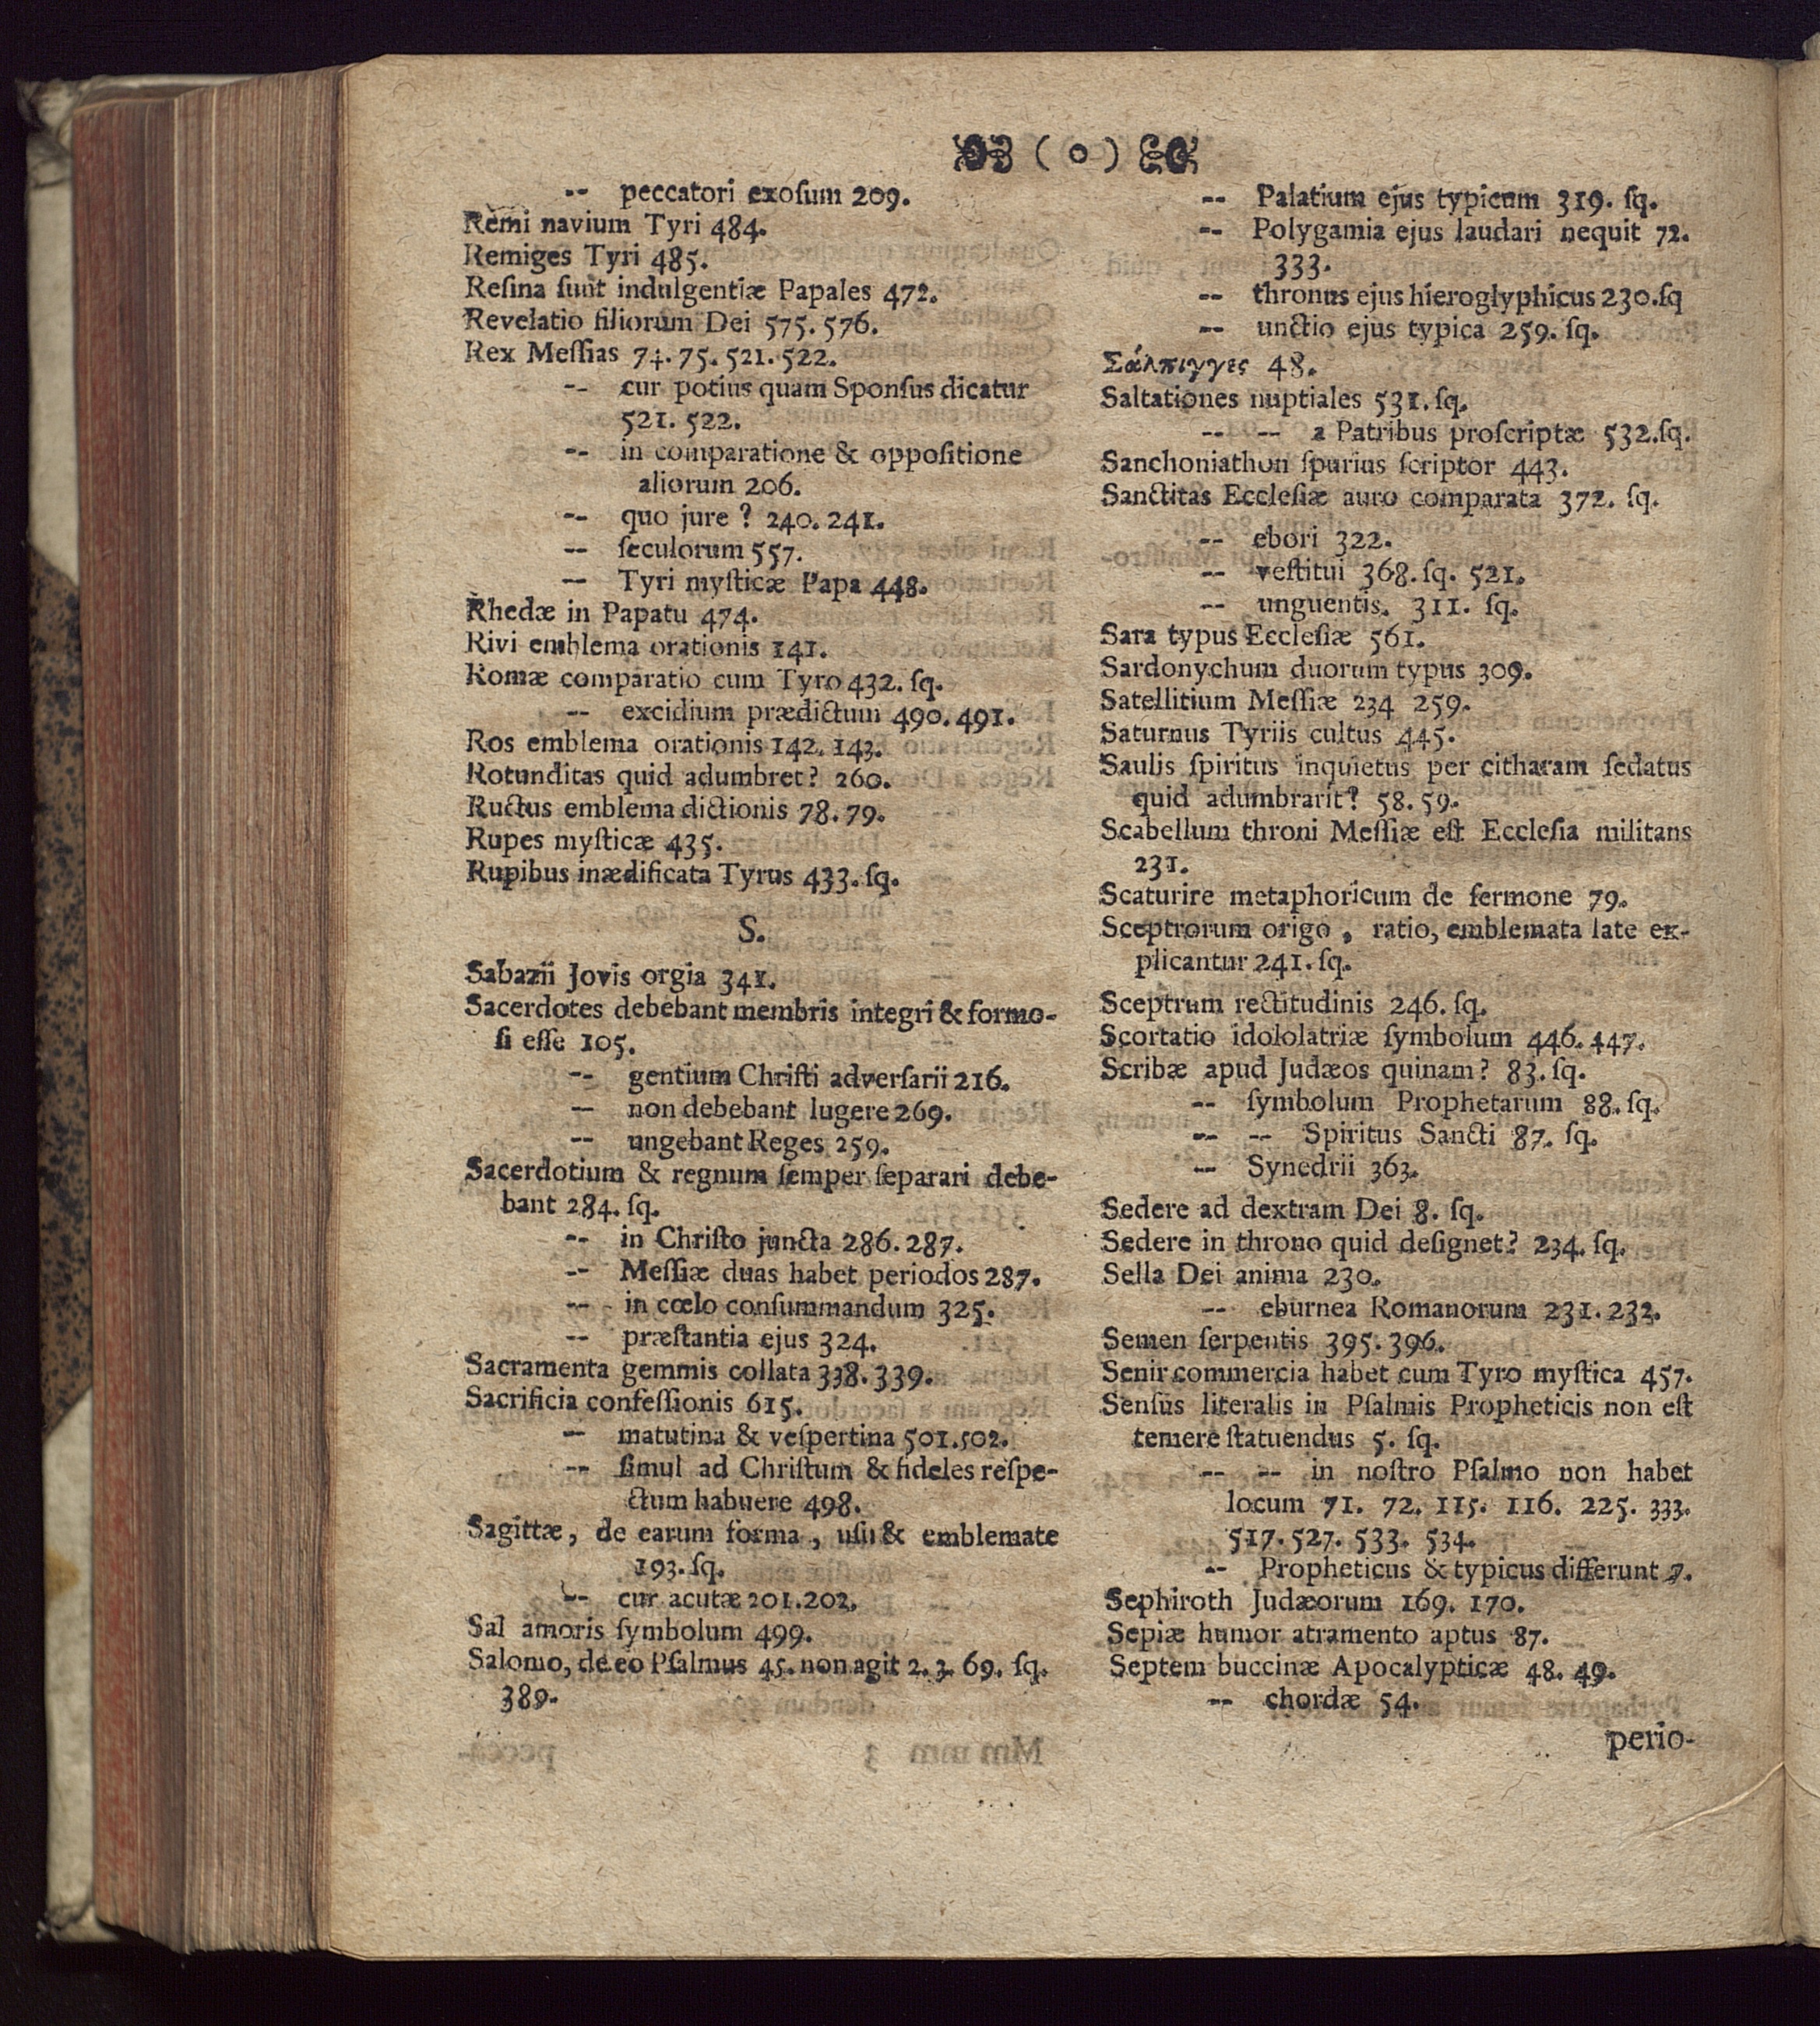 ( o )
-- peccatori exoſum 209.
Remi navium Tyri 484.
Remiges Tyri 485.
Reſina ſunt indulgentiæ Papales 472.
Revelatio filiorum Dei 575. 576.
Rex Meſſias 74. 75. 521. 522.
-- cur potius quam Sponſus dicatur
521. 522.
-- in comparatione & oppoſitione
aliorum 206.
-- quo jure ? 240. 241.
-- ſeculorum 557.
-- Tyri myſticæ Papa 448.
Rhedæ in Papatu 474.
Rivi emblema orationis 141.
Romæ comparatio cum Tyro 432. ſq.
-- excidium prædictum 490. 491.
Ros emblema orationis 142. 143.
Rotunditas quid adumbret? 260.
Ructus emblema dictionis 78. 79.
Rupes myſticæ 435.
Rupibus inædificata Tyrus 433. ſq.
S.
Sabazii Jovis orgia 341.
Sacerdotes debebant membris integri & formo-
ſi eſſe 105.
-- gentium Chriſti adverſarii 216.
-- non debebant lugere 269.
-- ungebant Reges 259.
Sacerdotium & regnum ſemper ſeparari debe-
bant 284. ſq.
-- in Chriſto juncta 286. 287.
-- Meſſiæ duas habet periodos 287.
-- in cœlo conſummandum 325.
-- præſtantia ejus 324.
Sacramenta gemmis collata 338. 339.
Sacrificia confeſſionis 615.
-- matutina & veſpertina 501. 502.
-- ſimul ad Chriſtum & fideles reſpe-
ctum habuere 498.
Sagittæ, de earum forma, uſu & emblemate
193. ſq.
-- cur acutæ 201. 202.
Sal amoris ſymbolum 499.
Salomo, de eo Pſalmus 45. non agit 2. 3. 69. ſq.
389.
-- Palatium ejus typicum 319. ſq.
-- Polygamia ejus laudari nequit 72.
333.
-- thronus ejus hieroglyphicus 230. ſq
-- unctio ejus typica 259. ſq.
Σάλπιγγες 48.
Saltationes nuptiales 531. ſq.
-- -- a Patribus proſcriptæ 532. ſq.
Sanchoniathon ſpurius ſcriptor 443.
Sanctitas Eccleſiæ auro comparata 372. ſq.
-- ebori 322.
-- veſtitui 368. ſq. 521.
-- unguentis. 311. ſq.
Sara typus Eccleſiæ 561.
Sardonychum duorum typus 309.
Satellitium Meſſiæ 234 259.
Saturnus Tyriis cultus 445.
Saulis ſpiritus inquietus per citharam ſedatus
quid adumbrarit? 58. 59.
Scabellum throni Meſſiæ eſt Eccleſia militans
231.
Scaturire metaphoricum de ſermone 79.
Sceptrorum origo, ratio, emblemata late ex-
plicantur 241. ſq.
Sceptrum rectitudinis 246. ſq.
Scortatio idololatriæ ſymbolum 446. 447.
Scribæ apud Judæos quinam? 83. ſq.
-- ſymbolum Prophetarum 88. ſq.
-- -- Spiritus Sancti 87. ſq.
-- Synedrii 363.
Sedere ad dextram Dei 8. ſq.
Sedere in throno quid deſignet? 234. ſq.
Sella Dei anima 230.
-- eburnea Romanorum 231. 232.
Semen ſerpentis 395. 396.
Senir commercia habet cum Tyro myſtica 457.
Senſus literalis in Pſalmis Propheticis non eſt
temere ſtatuendus 5. ſq.
-- -- in noſtro Pſalmo non habet
locum 71. 72. 115. 116. 225. 333.
517. 527. 533. 534.
-- Propheticus & typicus differunt 7.
Sephiroth Judæorum 169. 170.
Sepiæ humor atramento aptus 87.
Septem buccinæ Apocalypticæ 48. 49.
-- chordæ 54.
perio-